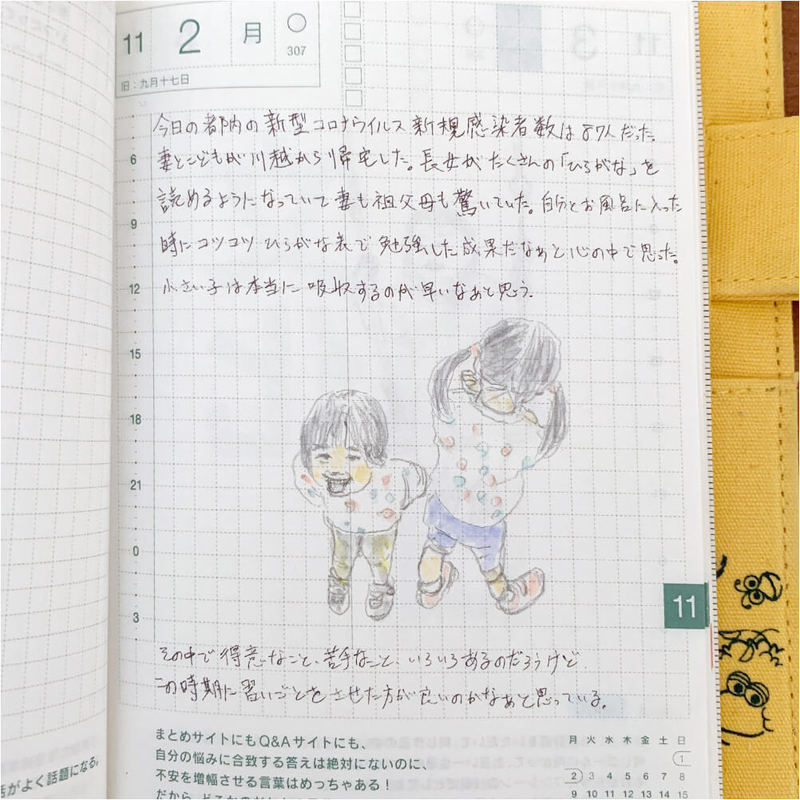 11 2 月
307
旧：九月十七日
今日の都内の新型コロナウイルス新規感染者数は87人だった。
妻とこどもが川越から帰宅した。長女がたくさんの「ひらがな」を
読めるようになっていて妻も祖父母も驚いていた。自分とお風呂に入った
時にコツコツひらがな表で勉強した成果だなぁと心の中で思った。
小さい子は本当に吸収するのが早いなぁと思う。
6
9
12
15
18
21
0
3
11
その中で得意なこと、苦手なこと、いろいろあるのだろうけど
この時期に習いごとをさせた方が良いのかなぁと思っている。
まとめサイトにもQ&Aサイトにも、
自分の悩みに合致する答えは絶対にないのに、
不安を増幅させる言葉はめっちゃある！
がよく話題になる。
月 火 水 木 金 土 日
1
2 3 4 5 6 7 8
9 10 11 12 13 14 15